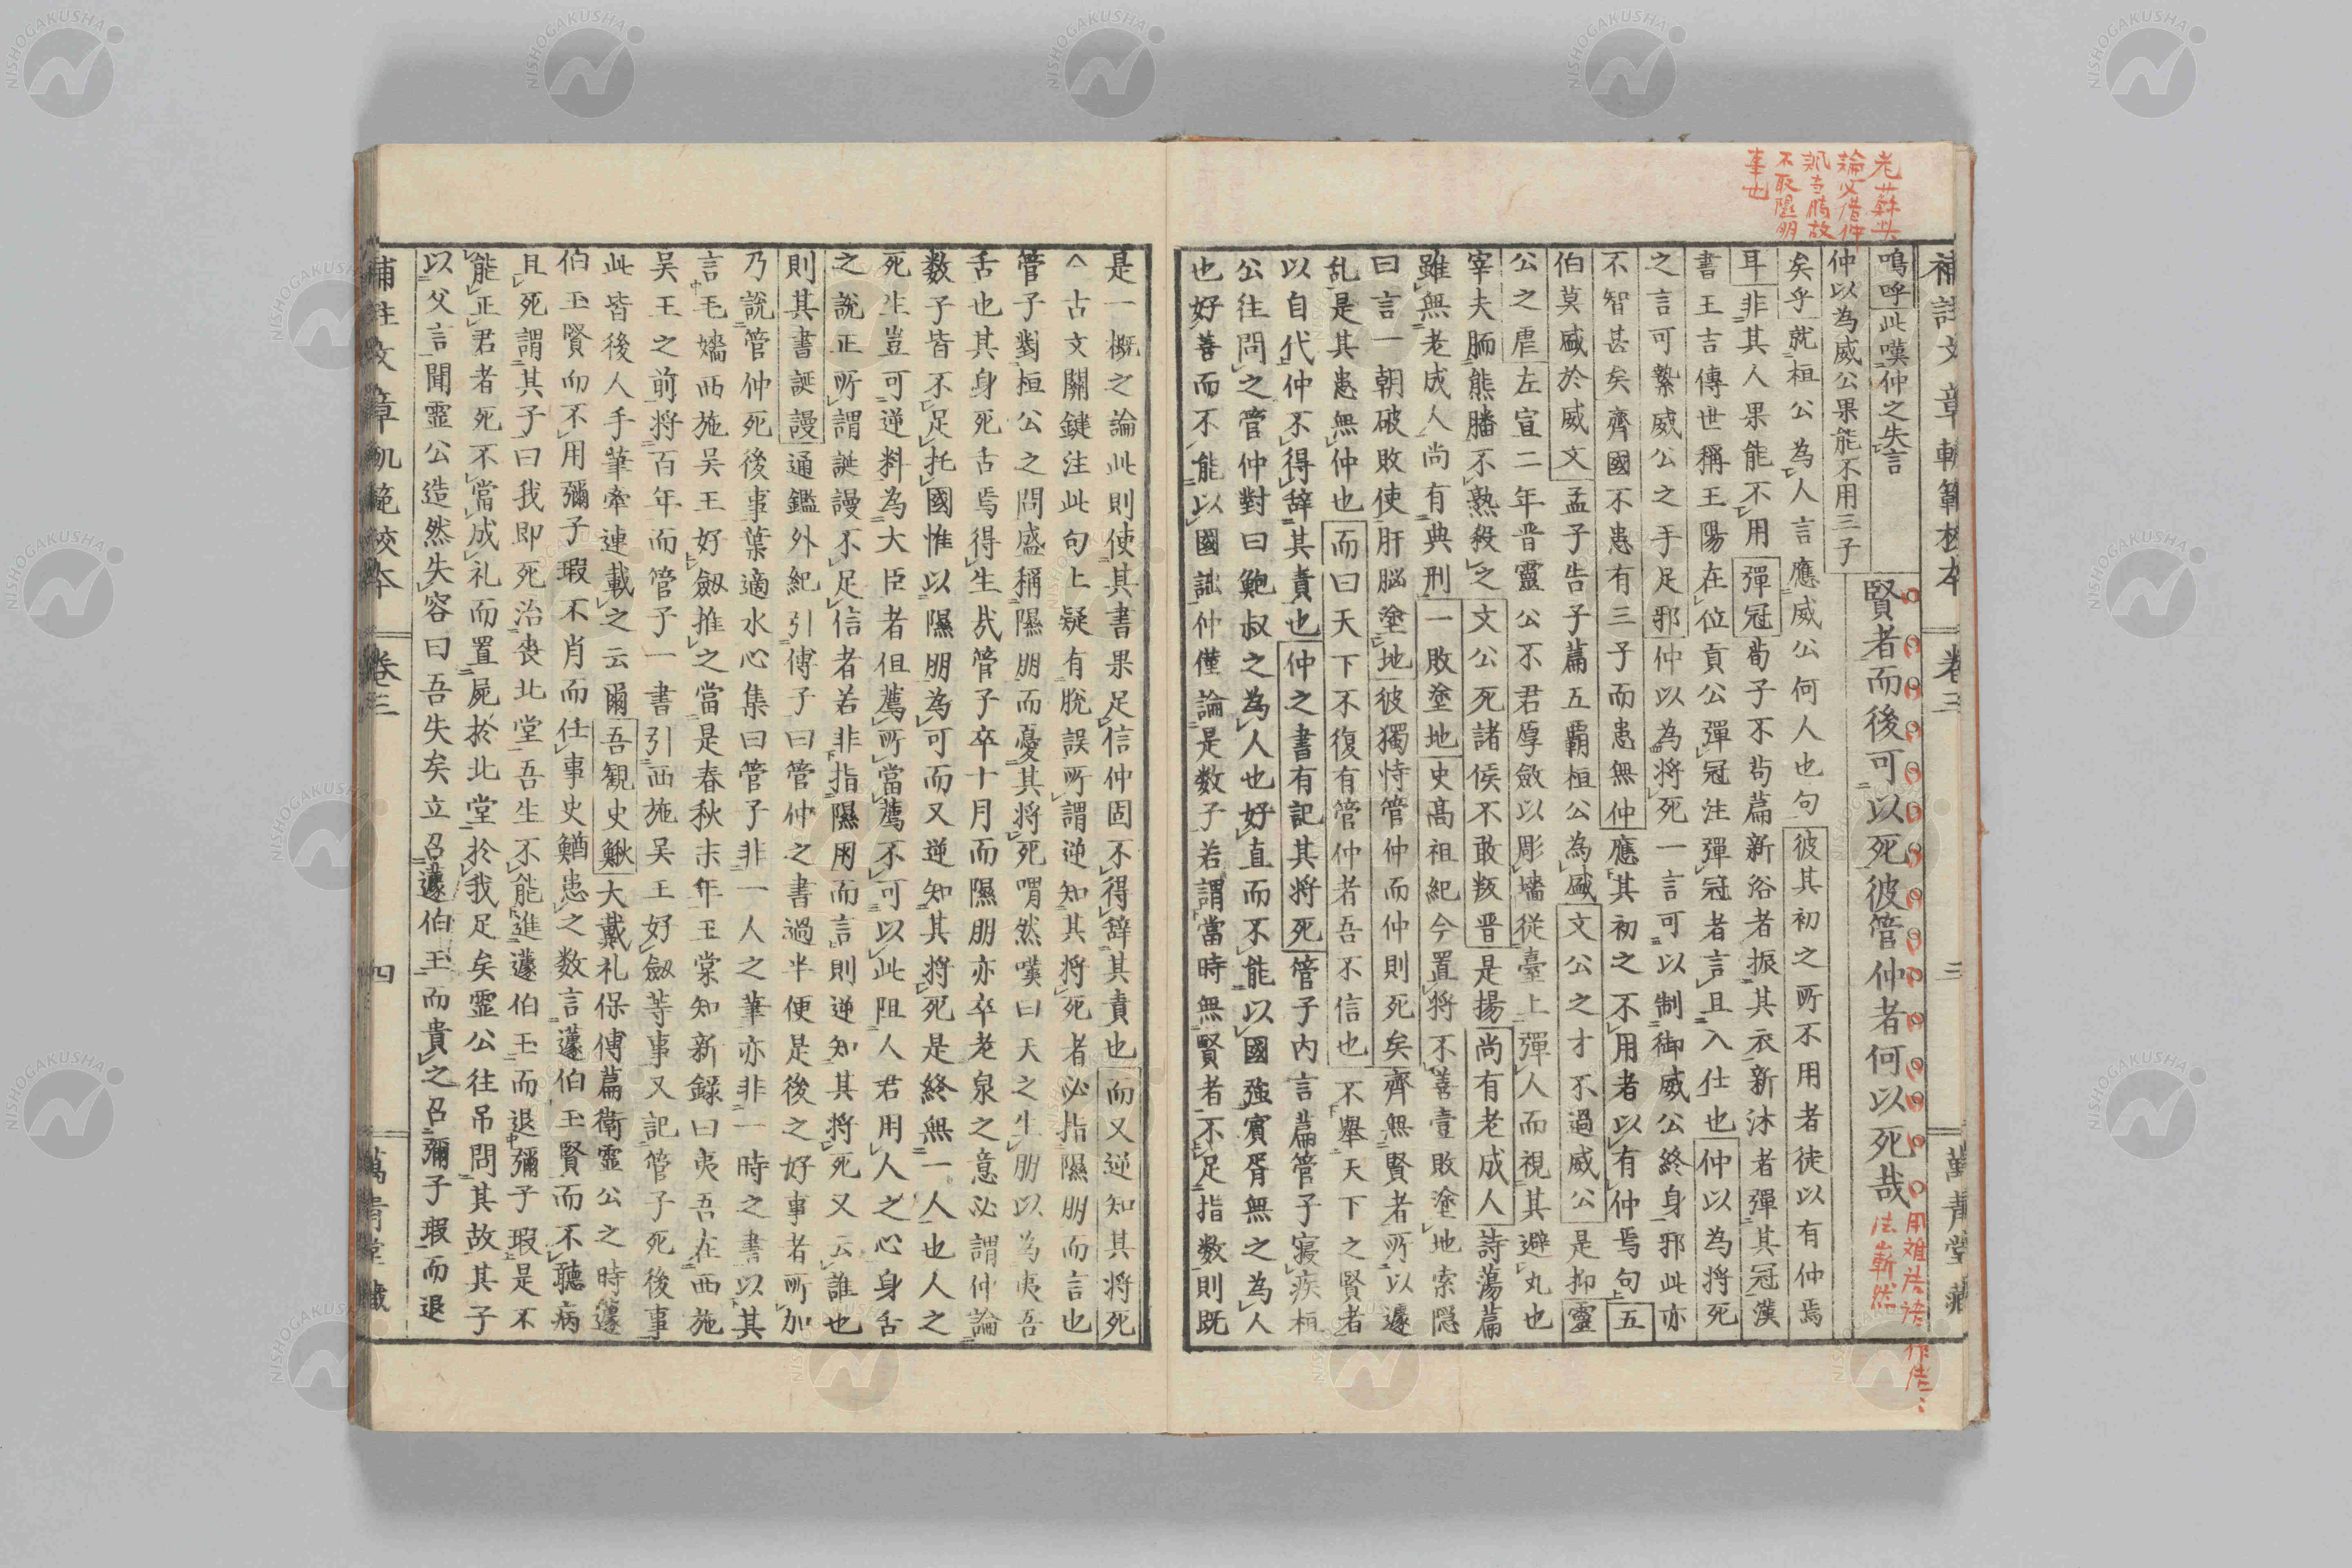 老蘇此
論只借仲
不取隰朋
事也
補註文章軌範校本 卷三 三 萬青堂藏
嗚呼此嘆仲之失言
仲以為威公果能不用三子
賢者而後可以死彼管仲者何以死哉
用難詰語作佳
法嶄然
矣乎就桓公為人言應威公何人也句彼其初之所不用者徒以有仲焉
耳非其人果能不用彈冠荀子不茍篇新浴者振其衣新沐者彈其冠漢
書王吉傳世稱王陽在位貢公彈冠注彈冠者言且入仕也仲以為將死
之言可縶威公之手足邪仲以為將死一言可以制御威公終身邪此亦
不智甚矣齊國不患有三子而患無仲應其初之不用者以有仲焉句五
伯莫盛於威文孟子告子篇五霸桓公為盛文公之才不過威公是抑靈
公之虐左宣二年晋靈公不君厚斂以彫墻從臺上彈人而視其避丸也
宰夫胹熊膰不熟殺之文公死諸侯不敢叛晋是揚尚有老成人詩蕩篇
雖無老成人尚有典刑一敗塗地史高祖紀今置將不善壹敗塗地索隠
曰言一朝破敗使肝脳塗地彼獨恃管仲而仲則死矣齊無賢者所以遽
乱是其患無仲也而曰天下不復有管仲者吾不信也不舉天下之賢者
以自代仲不得辞其責也仲之書有記其将死管子内言篇管子寝疾桓
公往問之管仲對曰鮑叔之為人也好直而不能以國強賓胥無之為人
也好善而不能以國詘仲僅論是数子若謂當時無賢者不足指数則既
是一概之論此則使其書果足信仲固不得辞其責也而又逆知其将死
古文關鍵注此句上疑有脱誤所謂逆知其将死者必指隰朋而言也
管子對桓公之問盛稱隰朋而憂其将死喟然嘆曰天之生朋以為夷吾
舌也其身死舌焉得生哉管子卒十月而隰朋亦卒老泉之意必謂仲論
数子皆不足托國惟以隰朋為可而又逆知其将死是終無一人也人之
死生豈可逆料為大臣者但薦所當薦不可以此阻人君用人之心身舌
之說正所謂誕謾不足信者若非指隰朋而言則逆知其将死又云誰也
則其書誕謾通鑑外紀引傅子曰管仲之書過半便是後之好事者所加
乃說管仲死後事葉適水心集曰管子非一人之筆亦非一時之書以其
言毛嬙西施吴王好劔推之當是春秋末年王棠知新録曰夷吾在西施
吴王之前将百年而管子一書引西施吴王好劔等事又記管子死後事
此皆後人手筆牽連載之云爾吾観史鰌大戴礼保傅篇衛霊公之時蘧
伯玉賢而不用彌子瑕不肖而任事史鰌患之数言蘧伯玉賢而不聴病
且死謂其子曰我即死治喪北堂吾生不能進蘧伯玉而退彌子瑕是不
能正君者死不當成礼而置屍於北堂於我足矣霊公往吊問其故其子
以父言聞靈公造然失容曰吾失矣立召蘧伯玉而貴之召彌子瑕而退
補註文章軌範校本 卷三 四 萬青堂藏